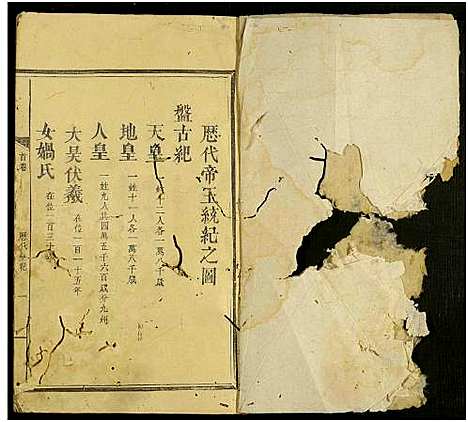 歷代帝王統紀之圖
盤古紀
天皇 一姓十二人各一萬八千歲
地皇 一姓十一人各一萬八千歲
人皇 一姓九人共四萬五千六百歲分九州
大昊伏羲 在位一百一十五年
女媧氏 在位一百三十年
首卷 歷代 一